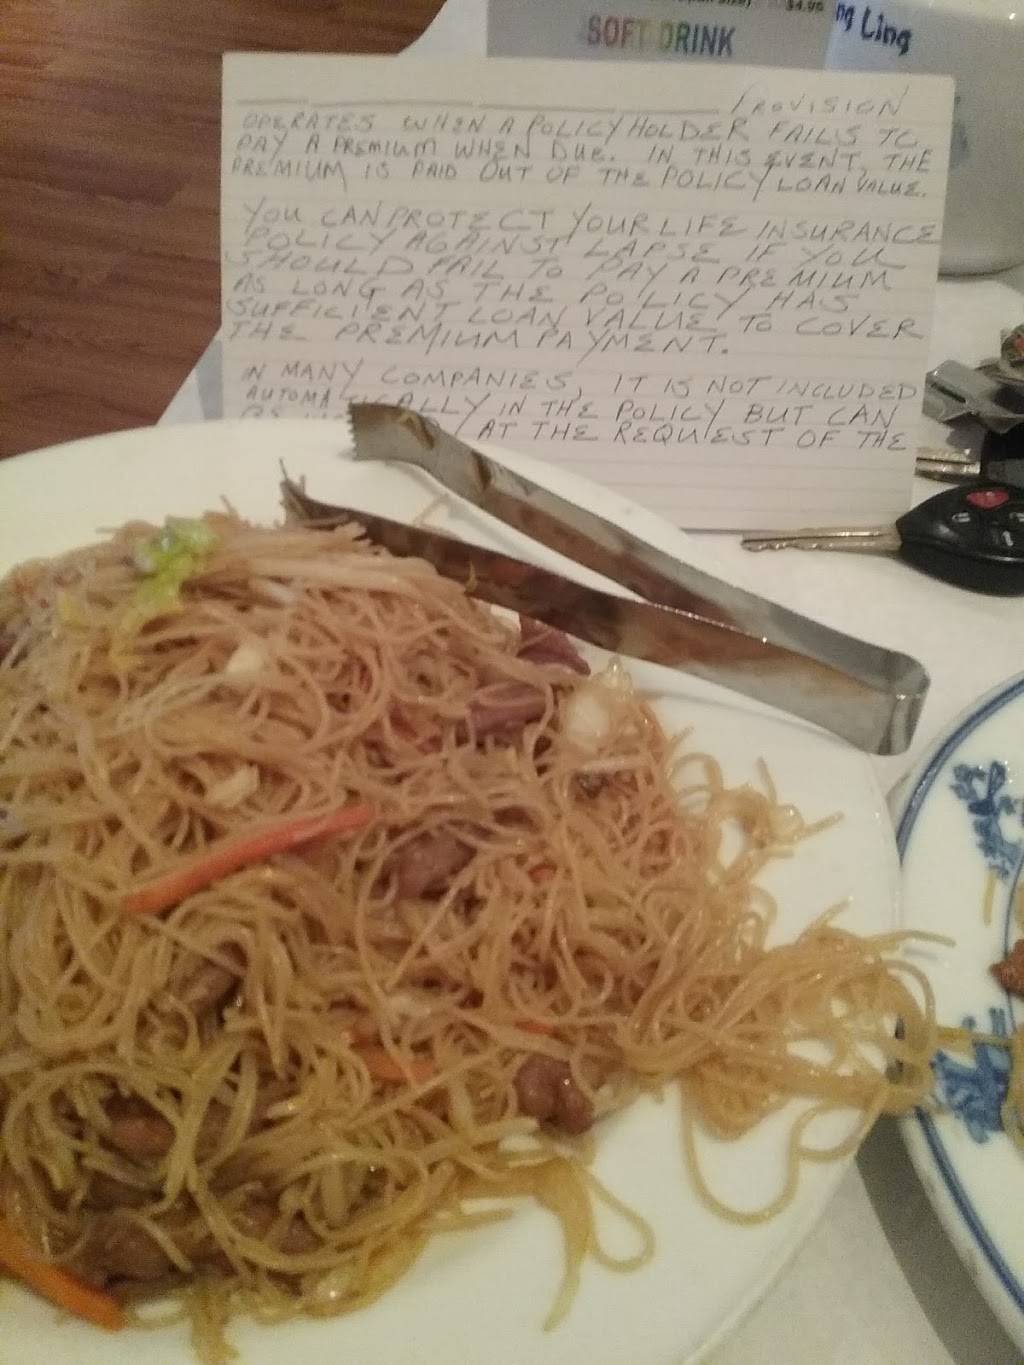 $4.99
SOFT DRINK
ng Ling
PROVISION
OPERATES WHEN A POLICYHOLDER FAILS TO
PAY A PREMIUM WHEN DUE. IN THIS EVENT, THE
PREMIUM IS PAID OUT OF THE POLICY LOAN VALUE.
YOU CAN PROTECT YOUR LIFE INSURANCE
POLICY AGAINST LAPSE IF YOU
SHOULD FAIL TO PAY A PREMIUM
AS LONG AS THE POLICY HAS
SUFFICIENT LOAN VALUE TO COVER
THE PREMIUM PAYMENT.
IN MANY COMPANIES, IT IS NOT INCLUDED
AUTOMATICALLY IN THE POLICY BUT CAN
BE AT THE REQUEST OF THE